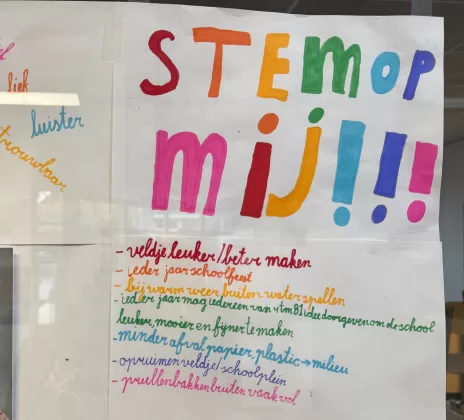 liek
luister
trouwbaar
STEM OP
mij!!!
- veldje leuker/beter maken
- ieder jaar schoolfeest
- bij warm weer buiten water spellen
- ieder jaar mag iedereen van 4 tm 8 1 idee doorgeven om de school
leuker, mooier en fijner te maken
- minder afval papier, plastic → milieu
- opruimen veldje/schoolplein
- prullenbakken buiten vaak vol